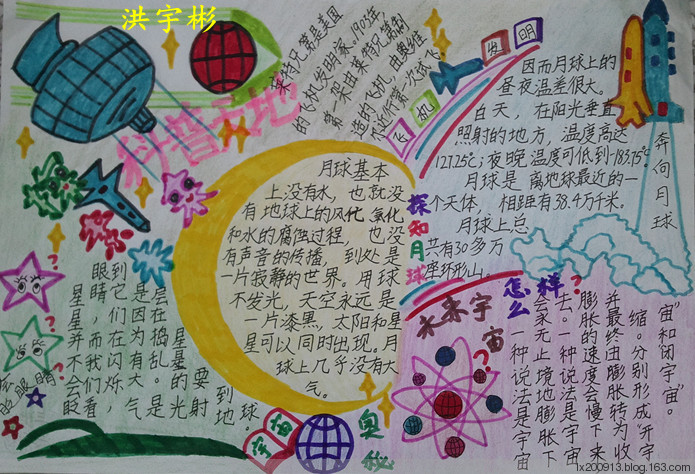 洪宇彬
科普天地
莱特兄弟是美国
的飞机发明家。1903年,
第一架由莱特兄弟制
造的飞机
飞机
发明
因而月球上的
昼夜温差很大。
白天，在阳光垂直
照射的地方，温度高达
127.25℃；夜晚温度可低到-183.75℃
月球是离地球最近的一
个天体，相距有38.4万千米。
月球上总
共有30多万
座环形山。
奔向月球
探知月球
月球基本
上没有水，也就没
有地球上的风化、氧化
和水的腐蚀过程，也没
有声音的传播，到处是
一片寂静的世界。月球
不发光，天空永远是
一片漆黑，太阳和星
星可以同时出现。月
球上几乎没有大
气。
眼到
星睛它是层
星，们因在
并而在为捣
不我闪有乱星
会们烁大。的要
眨看，气是光射到地球。
会眨眼睛
宇宙
奥秘
怎么样
未来宇宙
宙”和闭宇宙”。
缩。分别形成“开宇
并最终由膨胀转为收
膨胀的速度会慢下来
去。一种说法是宇宙
会永无止境地膨胀下
一种说法是宇宙
lx200913.blog.163.com